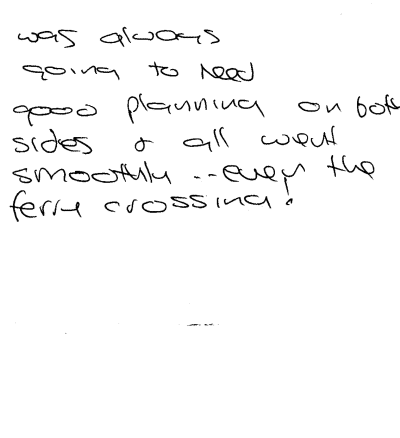 was always
going to need
good planning on both
sides & all went
smoothly -- even the
ferry crossing!